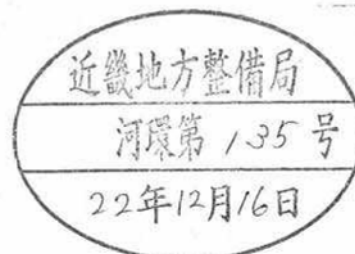 近畿地方整備局
河環第 135 号
22年12月16日